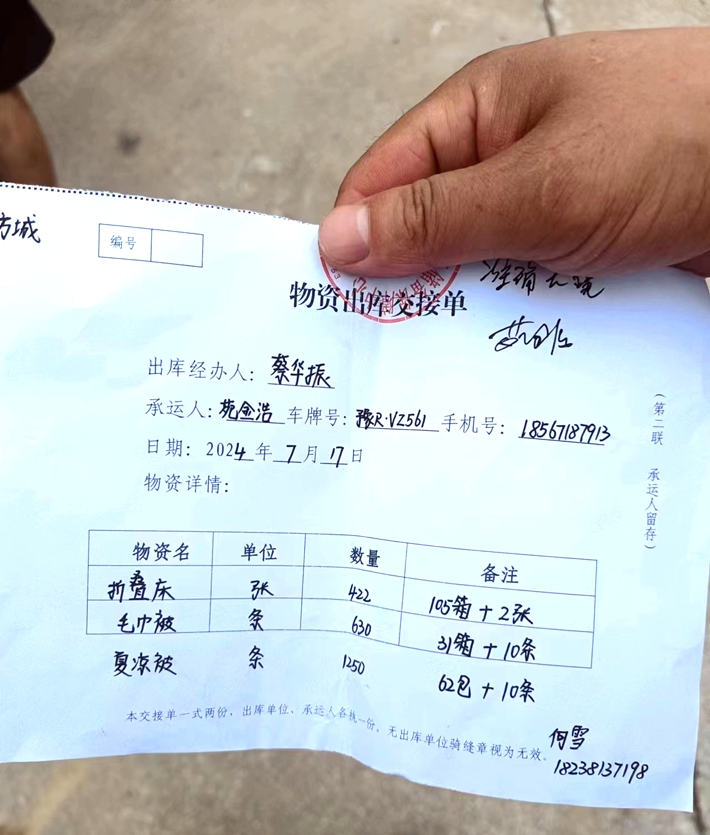 方城
编号
物资出库交接单
出库经办人：蔡华振
承运人：苑金浩 车牌号：豫R·VZ561 手机号：18567187913
日期：2024年7月17日
物资详情：
物资名 单位 数量 备注
折叠床 张 422 105箱+2张
毛巾被 条 630 31箱+10条
夏凉被 条 1250 62包+10条
本交接单一式两份，出库单位、承运人各执一份，无出库单位骑缝章视为无效。
何雪
18238137198
（第二联 承运人留存）